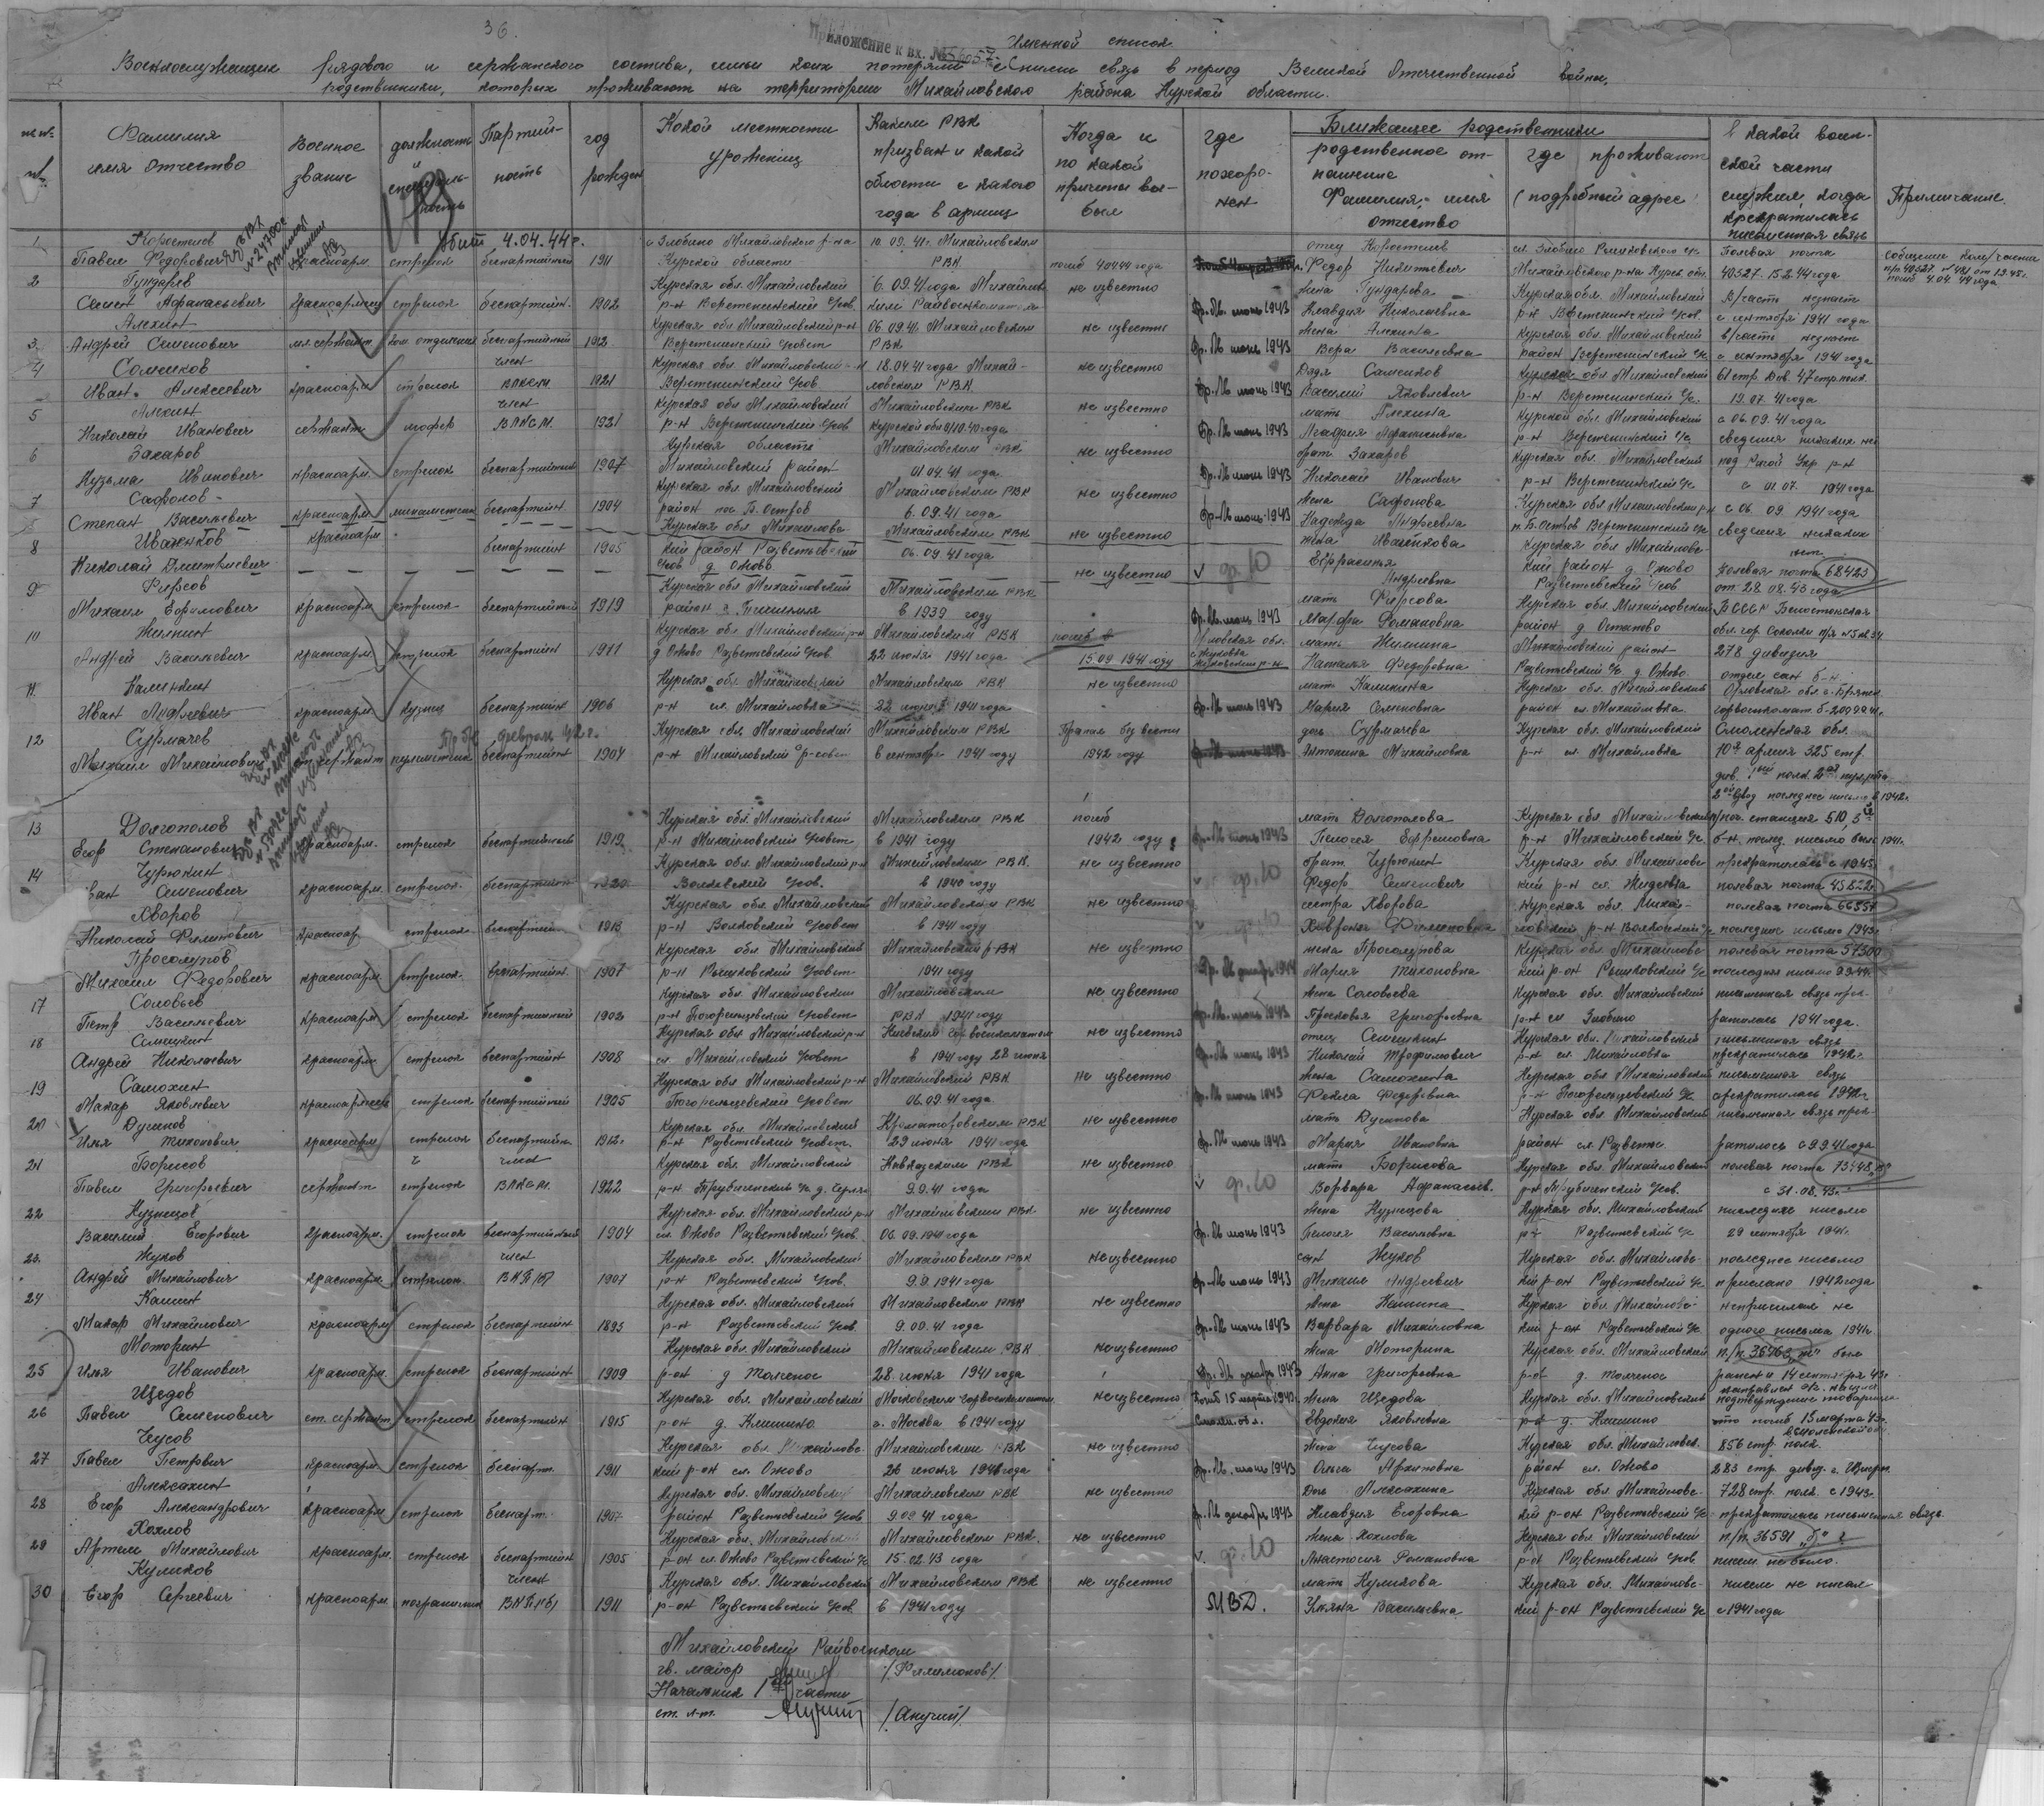 36.
Приложение к вх. №
Именной список
Военнослужащих рядового и сержанского состава, семьи коих потеряли с ними связь в период Великой Отечественной войны,
родственники, которых проживают на территории Михайловского района Курской области.
Фамилия имя отчество
Военное звание
должность и специальность
Партийность
год рожден
Какой местности уроженец
Каким РВК призван и какой области с какого года в армии
Когда и по какой причине выбыл
где похоронен
Ближащее родственники
родственное отношение Фамилия, имя отчество
где проживают (подробный адрес
в какой воинской части служил, когда прекратилась письменная связь
Примичание
Убит 4.04.44 г.
1 Коростелев Павел Федорович красноарм. стрелок беспартийный 1911 с Злобино Михайловского р-на Курской области 10.09.41г. Михайловским РВК погиб 4.04.44 года отец Коростелев Федор Никитович сл. Злобино Михайловского р-на Курск обл. Полевая почта 40527 15.2.44 года
2 Гундарев Семен Афанасьевич красноармеец стрелок беспартийн. 1902 Курская обл. Михайловский р-н Веретенинский Усов. 6.09.41 года не известно Пр. б/в июнь 1943 жена Гундарева Клавдия Николаевна Курская обл. Михайловский р-н Веретенинский Усов. В/часть незнает с сентября 1941 года
3 Алехин Андрей Семенович мл. сержант ком. отделения беспартийный 1912 Курская обл Михайловский р-н Веретенинский Усовет 06.09.41 Михайловским РВК не известно Пр. б/в июнь 1943 жена Алехина Вера Васильевна Курская обл. Михайловский район Веретенинский Ус. в/часть незнает с сентября 1941 года
4 Сомников Иван Алексеевич красноарм стрелок член ВЛКСМ 1921 Курская обл. Михайловский р-н Веретенинский Усов 18.04.41 года Михайловским РВК не известно Пр. б/в июнь 1943 Дядя Самсиков Василий Яковлевич Курская обл Михайловский р-н Веретенинский Ус. 61 стр. Див. 47 стр полк. 19.07.41 года
5 Алехин Николай Иванович сержант шофер член ВЛКСМ. 1921 Курская обл Михайловский р-н Веретенинский Усов Михайловским РВК не известно Пр. б/в июнь 1943 мать Алехина Курской обл. Михайловский р-н Веретенинский Ус. с 06.09.41 года
6 Захаров Кузьма Иванович красноарм. стрелок беспартийный 1907 Курская область Михайловский район Михайловским РВК 01.04.41 года не известно Пр. б/в июнь 1943 брат Захаров Николай Иванович Курская обл. Михайловский р-н Веретенинский Ус с 01.07. 1941 года
7 Сафонов Степан Васильевич красноарм. минометчик беспартийн. 1904 Курская обл. Михайловский район пос Б. Остров Михайловским РВК 6.09.41 года не известно Пр. б/в июнь 1943 жена Сафонова Надежда Андреевна Курская обл Михайловский р-н п. Б. Остров Веретенинский Ус с 06.09 1941 года сведения никаких нет
8 Иваненков Николай Дмитриевич красноарм беспартийн 1905 Курская обл. Михайловский район Разветьевский Усов д Ожово Михайловским РВК 06.09.41 года не известно Ефросиния Андреевна Курская обл Михайловский район д Ожово Разветьевский Усов Полевая почта 68423 от 28.08.43 года
9 Фирсов Михаил Ефимович красноарм. стрелок беспартийный 1919 Курская обл Михайловский район Михайловским РВК в 1939 году не известно Пр. б/в июнь 1943 мать Фирсова Марфа Романовна Курская обл. Михайловский район д Остапово БССР Белостокская обл. гор. Соколки
10 Жилкин Андрей Васильевич красноарм. стрелок беспартийн 1911 Курская обл. Михайловский р-н д Ожово Разветьевский Усов. Михайловским РВК 22 июня 1941 года погиб в 15.09 1941 году Орловская обл. мать Жилкина Наталья Федоровна Михайловский район Разветьевский Ус д. Ожово 278 дивизия отдел сан б-н
11 Калинкин Иван Андреевич красноарм. кузнец беспартийн 1906 Курская обл. Михайловский р-н сл. Михайловка Михайловским РВК 22 июня 1941 года не известно Пр. б/в июнь 1943 мать Калинкина Мария Семеновна Курская обл. Михайловский район сл. Михайловка Орловская обл. г. Брянск
Пр. б/в февраль 42 г.
12 Сурмачев Михаил Михайлович сержант пулеметчик беспартийн 1904 Курская обл. Михайловский р-н Михайловский Усовет Михайловским РВК в сентябре 1941 году Пропал без вести 1942 году дочь Сурмачева Антонина Михайловна Курская обл. Михайловский р-н сл. Михайловка Смоленская обл. 10я армия 325 стр. див. последнее письмо в 1942г.
13 Долгополов Егор Степанович красноарм. стрелок беспартийный 1919 Курская обл. Михайловский р-н Михайловский Усовет Михайловским РВК в 1941 году погиб 1942 году мать Долгополова Пелогея Ефремовна Курская обл. Михайловский р-н Михайловский Ус. поч. станция 510
14 Чурюкин Иван Семенович красноарм. стрелок беспартийн 1920 Курская обл. Михайловский р-н Волковский Усов. Михайловским РВК. в 1940 году не известно брат Чурюкин Федор Семенович Курская обл. Михайловский р-н сл. Жиделевка прекратилась с 1943г. полевая почта 45822
Хворов Николай Филипович красноар стрелок беспартийн 1913 Курская обл Михайловский р-н Волковский Усовет Михайловским РВК в 1941 году не известно сестра Хворова Хавронья Филиповна Курская обл. Михайловский р-н Волковский Ус полевая почта последнее письмо 1943г.
Просолупов Михаил Федорович красноарм. стрелок. беспартийн. 1907 Курская обл. Михайловский р-н Рышковский Усовет Михайловский РВК 1941 году не известно жена Просолупова Мария Тихоновна Курская обл Михайловский р-он Рышковский Ус полевая почта 57300 последнее письмо
17 Соловьев Петр Васильевич красноарм стрелок беспартийный 1902 Курская обл. Михайловский р-н Погорельцевский Усовет Михайловским РВК 1941 году не известно Пр. б/в июнь 1943 жена Соловьева Просковья Григорьевна Курская обл. Михайловский р-н сл Злобино письменная связь прекратилась 1941 года.
18 Семишкин Андрей Николаевич красноарм. стрелок беспартийн 1908 Курская обл Михайловский р-н сл. Михайловский Усовет Киевским Гор военкоматом в 1941 году 28 июня не известно Пр. б/в июнь 1943 отец Семишкин Николай Трофимович Курская обл. Михайловский р-н сл. Михайловка письменная связь прекратилась 1942г.
19 Самохин Макар Яковлевич красноармеец стрелок беспартийный 1905 Курская обл Михайловский р-н Погорельцевский Усовет Михайловский РВК 06.09.41 года не известно Пр. б/в июнь 1943 жена Самохина Фекла Федоровна Курская обл Михайловский р-н Погорельцевский Ус. письменная связь прекратилась 1942г.
20 Дусинов Илья Тихонович красноарм стрелок беспартийн 1912г. Курская обл. Михайловский р-н Разветьевский Усовет. Краматоровским РВК 29 июня 1941 года не известно Пр. б/в июнь 1943 мать Дусинова Мария Ивановна Курская обл. Михайловский район сл. Разветье письменная связь прекратилась с 9.9.41 года
21 Борисов Павел Григорьевич сержант стрелок член ВЛКСМ. 1922 Курская обл. Михайловский р-н Трубиченский Ус Кавказским РВК 9.9.41 года не известно мать Борисова Ворвара Афанасьев. Курская обл. Михайловский р-н Трубиченский Усов. полевая почта с 31.08.43г.
22 Кузнецов Василий Егорович красноарм. стрелок беспартийный 1904 Курская обл. Михайловский р-н сл. Ожово Разветьевский Усов. Михайловским РВК 06.09.1941 года не известно Пр. б/в июнь 1943 жена Кузнецова Пелогея Васильевна Курская обл. Михайловский р-н Разветьевский Ус последнее письмо 29 сентября 1941г.
23. Жуков Андрей Михайлович красноарм. стрелок. член ВКП(б) 1907 Курская обл. Михайловский р-н Разветьевский Усов. Михайловским РВК 9.9.1941 года неизвестно Пр. б/в июнь 1943 сын Жуков Михаил Андреевич Курская обл. Михайловский р-он Разветьевский Ус. последнее письмо прислано 1942 года
24 Кашин Макар Михайлович красноарм стрелок беспартийн 1893 Курская обл. Михайловский р-н Разветьевский Усов. Михайловским РВК 9.09.41 года не известно Пр. б/в июнь 1943 жена Кашина Варвара Михайловна Курская обл. Михайловский р-он Разветьевский Ус неприсылал не одного письма 1941г.
25 Моторин Илья Иванович красноарм. стрелок беспартийн 1909 Курская обл. Михайловский р-он д Толченое Михайловским РВК 28. июня 1941 года неизвестно Пр. б/в декабрь 1943 жена Моторина Анна Григорьевна Курская обл. Михайловский р-он д. Толченое был ранен и 14 сентября 43г.
26 Щедов Павел Семенович ст. сержант стрелок беспартийн 1915 Курская обл. Михайловский р-он д. Клишино Московским Горвоенкоматом г. Москва в 1941 году неизвестно Погиб 15 марта 1943г. Смолен. обл. жена Щедова Евдокия Яковлевна Курская обл. Михайловский р-он д. Клишино подтверждение товарищем что погиб 15 марта 43г. в Смоленской об.
27 Чусов Павел Петрович красноарм. стрелок беспарт. 1911 Курская обл. Михайловский р-он сл. Ожово Михайловским РВК 26 июня 1941 года не известно Пр. б/в. июнь 1943 жена Чусова Ольга Архиповна Курская обл. Михайловск. район сл. Ожово 856 стр. полк. 283 стр. дивиз.
28 Алексахин Егор Александрович красноарм. стрелок беспарт. 1907 Курская обл. Михайловский район Разветьевский Усов Михайловским РВК 9.09.41 года не известно Пр. б/в декабрь 1943 Дочь Алексахина Клавдия Егоровна Курская обл. Михайловский р-он Разветьевский Ус 728 стр. полк. с 1943г. прекратилась письменная связь
29 Хохлов Артем Михайлович красноарм. стрелок беспартийн 1905 Курская обл. Михайловский р-он сл. Ожово Разветьевский Ус Михайловским РВК. 15.02.43 года не известно жена Хохлова Анастосия Романовна Курская обл Михайловский р-он Разветьевский Усов. п/п. 36591 „Б" писем не было.
30 Куликов Егор Сергеевич красноарм. пограничник член ВКП(б) 1911 Курская обл. Михайловский р-он Разветьевский Усов Михайловским РВК в 1941 году не известно МВД. мать Куликова Ульяна Васильевна Курская обл. Михайловский р-он Разветьевский Ус писем не писал с 1941 года
Михайловский Райвоенком
гв. майор /Филимонов/.
Начальник 1ой части
ст. л-т. /Анучин/.